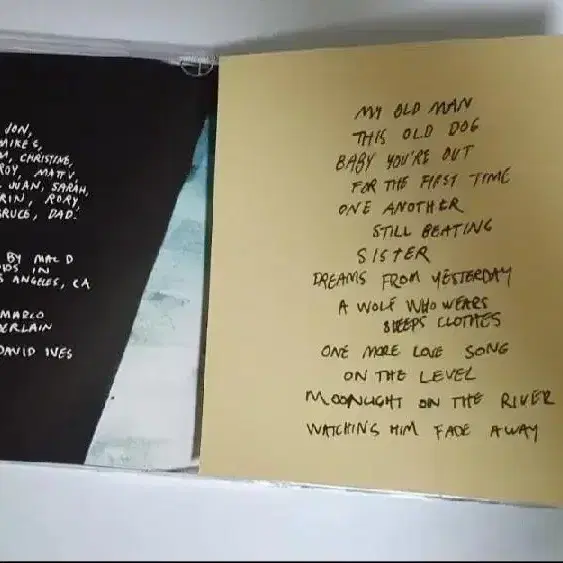 JON,
MIKE G,
M, CHRISTINE,
ROY, MATT V,
JUAN, SARAH,
RIN, RORY,
BRUCE, DAD.
BY MAC D
DS IN
S ANGELES, CA
MARCO
ERLAIN
DAVID IVES
MY OLD MAN
THIS OLD DOG
BABY YOU'RE OUT
FOR THE FIRST TIME
ONE ANOTHER
STILL BEATING
SISTER
DREAMS FROM YESTERDAY
A WOLF WHO WEARS
SHEEPS CLOTHES
ONE MORE LOVE SONG
ON THE LEVEL
MOONLIGHT ON THE RIVER
WATCHING HIM FADE AWAY